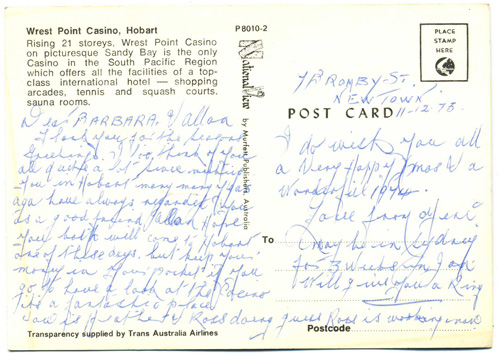 Wrest Point Casino, Hobart
Rising 21 storeys, Wrest Point Casino
on picturesque Sandy Bay is the only
Casino in the South Pacific Region
which offers all the facilities of a top-
class international hotel — shopping
arcades, tennis and squash courts,
sauna rooms.
P8010-2
National View
by Murfett Publishers, Australia
PLACE
STAMP
HERE
POST CARD
ST.
NEW TOWN
11-12-73
Dear BARBARA
Thank you for the Seasons
Greetings. I do think of you
all quite a bit since meeting
you in Hobart many many years
ago have always regarded you
as a good friend. Hope
you both will come to Hobart
one of these days. but keep your
money in your pocket if you
go to have a look at the Casino
its a fantastic place
Ross doing Rose is working now
I do wish you all
a Very Happy Xmas & a
Wonderful 1974.
Love from
To
I may be in Sydney
for 3 weeks in Jan
Will give you a Ring
Transparency supplied by Trans Australia Airlines
Postcode